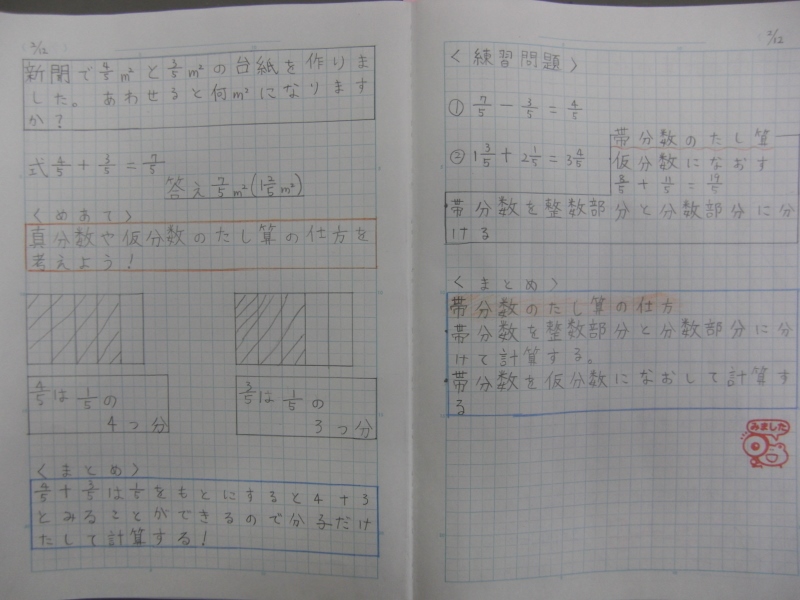 2/12
新聞で4/5m²と3/5m²の台紙を作りま
した。あわせると何m²になります
か?
式4/5+3/5=7/5
答え7/5m²(1 2/5m²)
<めあて>
真分数や仮分数のたし算の仕方を
考えよう!
4/5は1/5の
4つ分
3/5は1/5の
3つ分
<まとめ>
4/5+3/5は1/5をもとにすると4+3
とみることができるので分子だけ
たして計算する!
2/12
<練習問題>
① 7/5-3/5=4/5
② 1 3/5+2 1/5=3 4/5
帯分数のたし算
仮分数になおす
8/5+11/5=19/5
帯分数を整数部分と分数部分に分
ける
<まとめ>
帯分数のたし算の仕方
・帯分数を整数部分と分数部分に分
けて計算する。
・帯分数を仮分数になおして計算す
る
みました